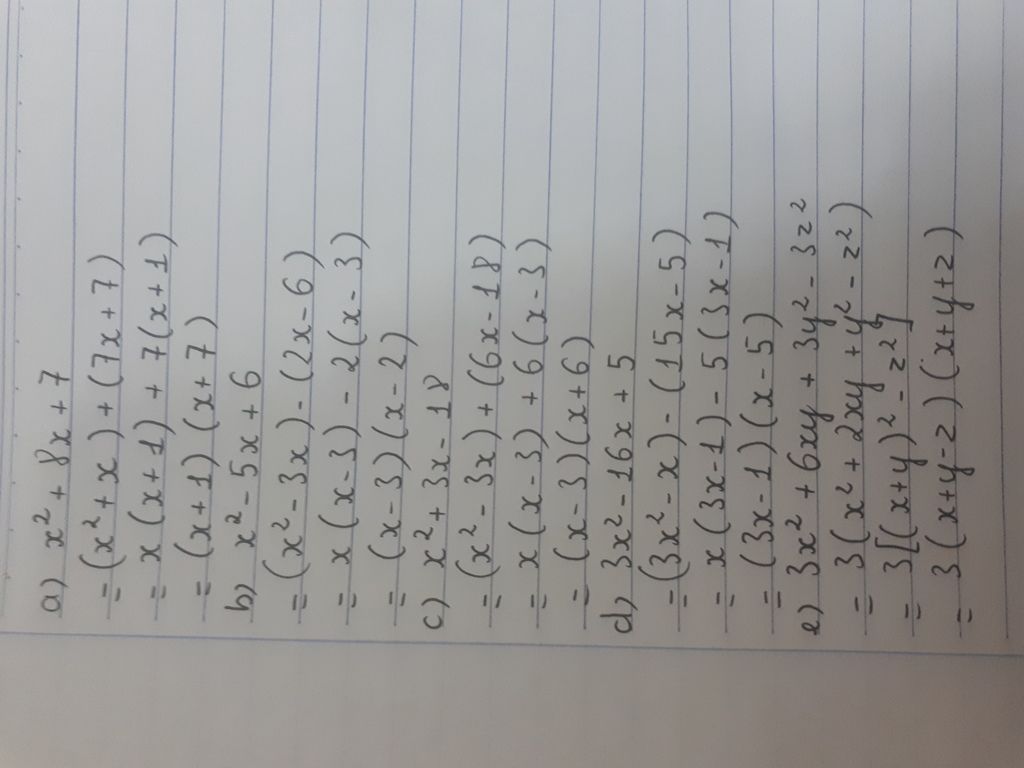 a) x² + 8x + 7
= (x² + x) + (7x + 7)
= x (x + 1) + 7(x + 1)
= (x + 1) (x + 7)
b) x² - 5x + 6
= (x² - 3x) - (2x - 6)
= x (x - 3) - 2 (x - 3)
= (x - 3)(x - 2)
c) x² + 3x - 18
= (x² - 3x) + (6x - 18)
= x (x - 3) + 6 (x - 3)
= (x - 3)(x + 6)
d) 3x² - 16x + 5
= (3x² - x) - (15x - 5)
= x (3x - 1) - 5 (3x - 1)
= (3x - 1) (x - 5)
e) 3x² + 6xy + 3y² - 3z²
= 3 (x² + 2xy + y² - z²)
= 3 [(x + y)² - z²]
= 3 (x + y - z) (x + y + z)